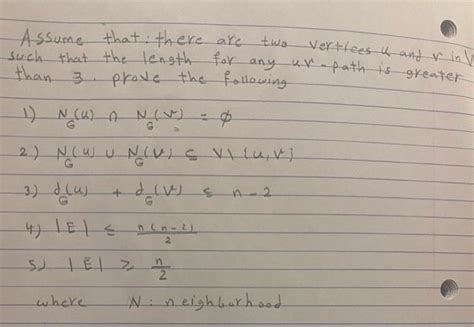 Assume that: there are two vertices u and v in V
such that the length for any uv-path is greater
than 3. prove the following
1) N_G(u) ∩ N_G(v) = ϕ
2) N_G(u) ∪ N_G(v) ⊆ V\{u,v}
3) d_G(u) + d_G(v) ≤ n-2
4) |E| ≤ n(n-2)/2
5) |E̅| ≥ n/2
where N: neighburhood